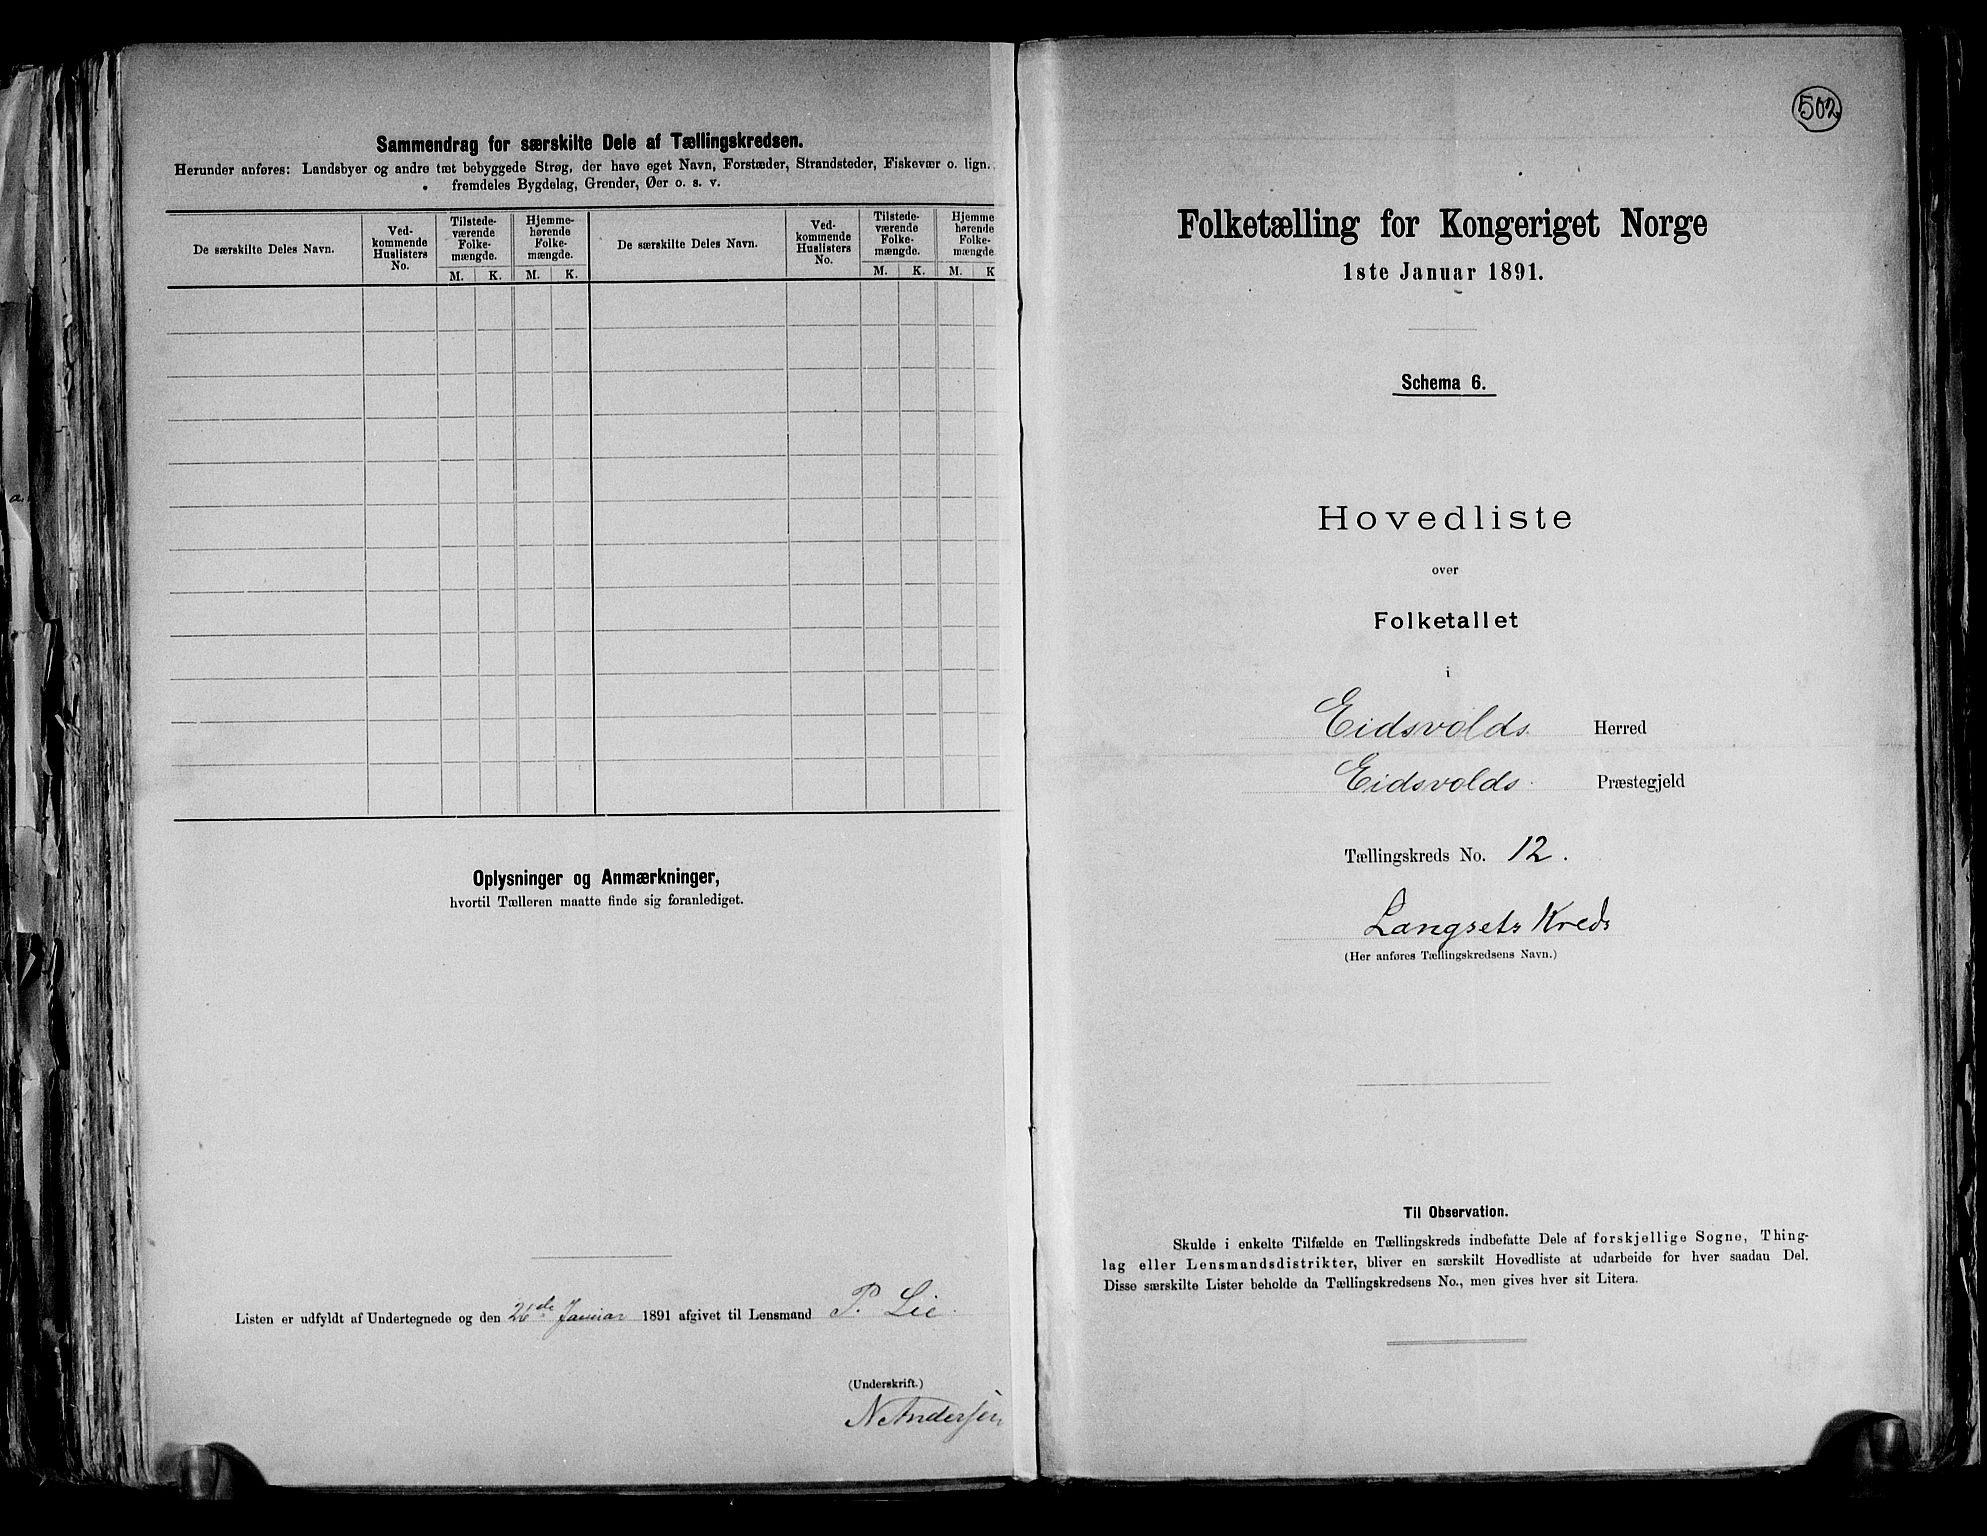 Sammendrag for særskilte Dele af Tællingskredsen.
Herunder anføres: Landsbyer og andre tæt bebyggede Strøg, der have eget Navn, Forstæder, Strandsteder, Fiskevær o. lign.
fremdeles Bygdelag, Grender, Øer o. s. v.
De særskilte Deles Navn.
Ved-
kommende
Huslisters
No.
Tilstede-
værende
Folke-
mængde.
Hjemme-
hørende
Folke-
mængde.
M. K. M. K.
De særskilte Deles Navn.
Ved-
kommende
Huslisters
No.
Tilstede-
værende
Folke-
mængde.
Hjemme
hørende
Folke-
mængde.
M. K. M. K
Oplysninger og Anmærkninger,
hvortil Tælleren maatte finde sig foranlediget.
Listen er udfyldt af Undertegnede og den 26de Januar 1891 afgivet til Lensmand P. Lie.
(Underskrift.)
N Andersen
502
Folketælling for Kongeriget Norge
1ste Januar 1891.
Schema 6.
Hovedliste
over
Folketallet
i
Eidsvolds Herred
Eidsvolds Præstegjeld
Tællingskreds No. 12.
Langsets Kreds
(Her anføres Tællingskredsens Navn.)
Til Observation.
Skulde i enkelte Tilfælde en Tællingskreds indbefatte Dele af forskjellige Sogne, Thing-
lag eller Lensmandsdistrikter, bliver en særskilt Hovedliste at udarbeide for hver saadan Del.
Disse særskilte Lister beholde da Tællingskredsens No., men gives hver sit Litera.